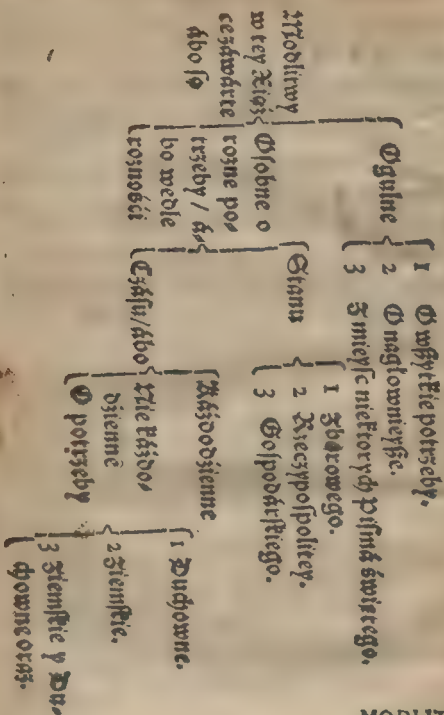 Modlitwy
w tey Xiąż
ce záwárte
ábo są
Ogulne
1 O wszytkie potrzeby.
2 O nagłownieysze.
3 Z mieysc niektorych Pismá świętego.
Osobne o
rozne po-
trzeby / á-
bo wedle
roznośći
Stanu
1 Zborowego.
2 Rzeczypospolitey.
3 Gospodárskiego.
Czásu / ábo
Káżdodzienne
Nie káżdo-
dzienné
O potrzeby
1 Duchowne.
2 Ziemskie.
3 Ziemskie y Du-
chowne oraz.